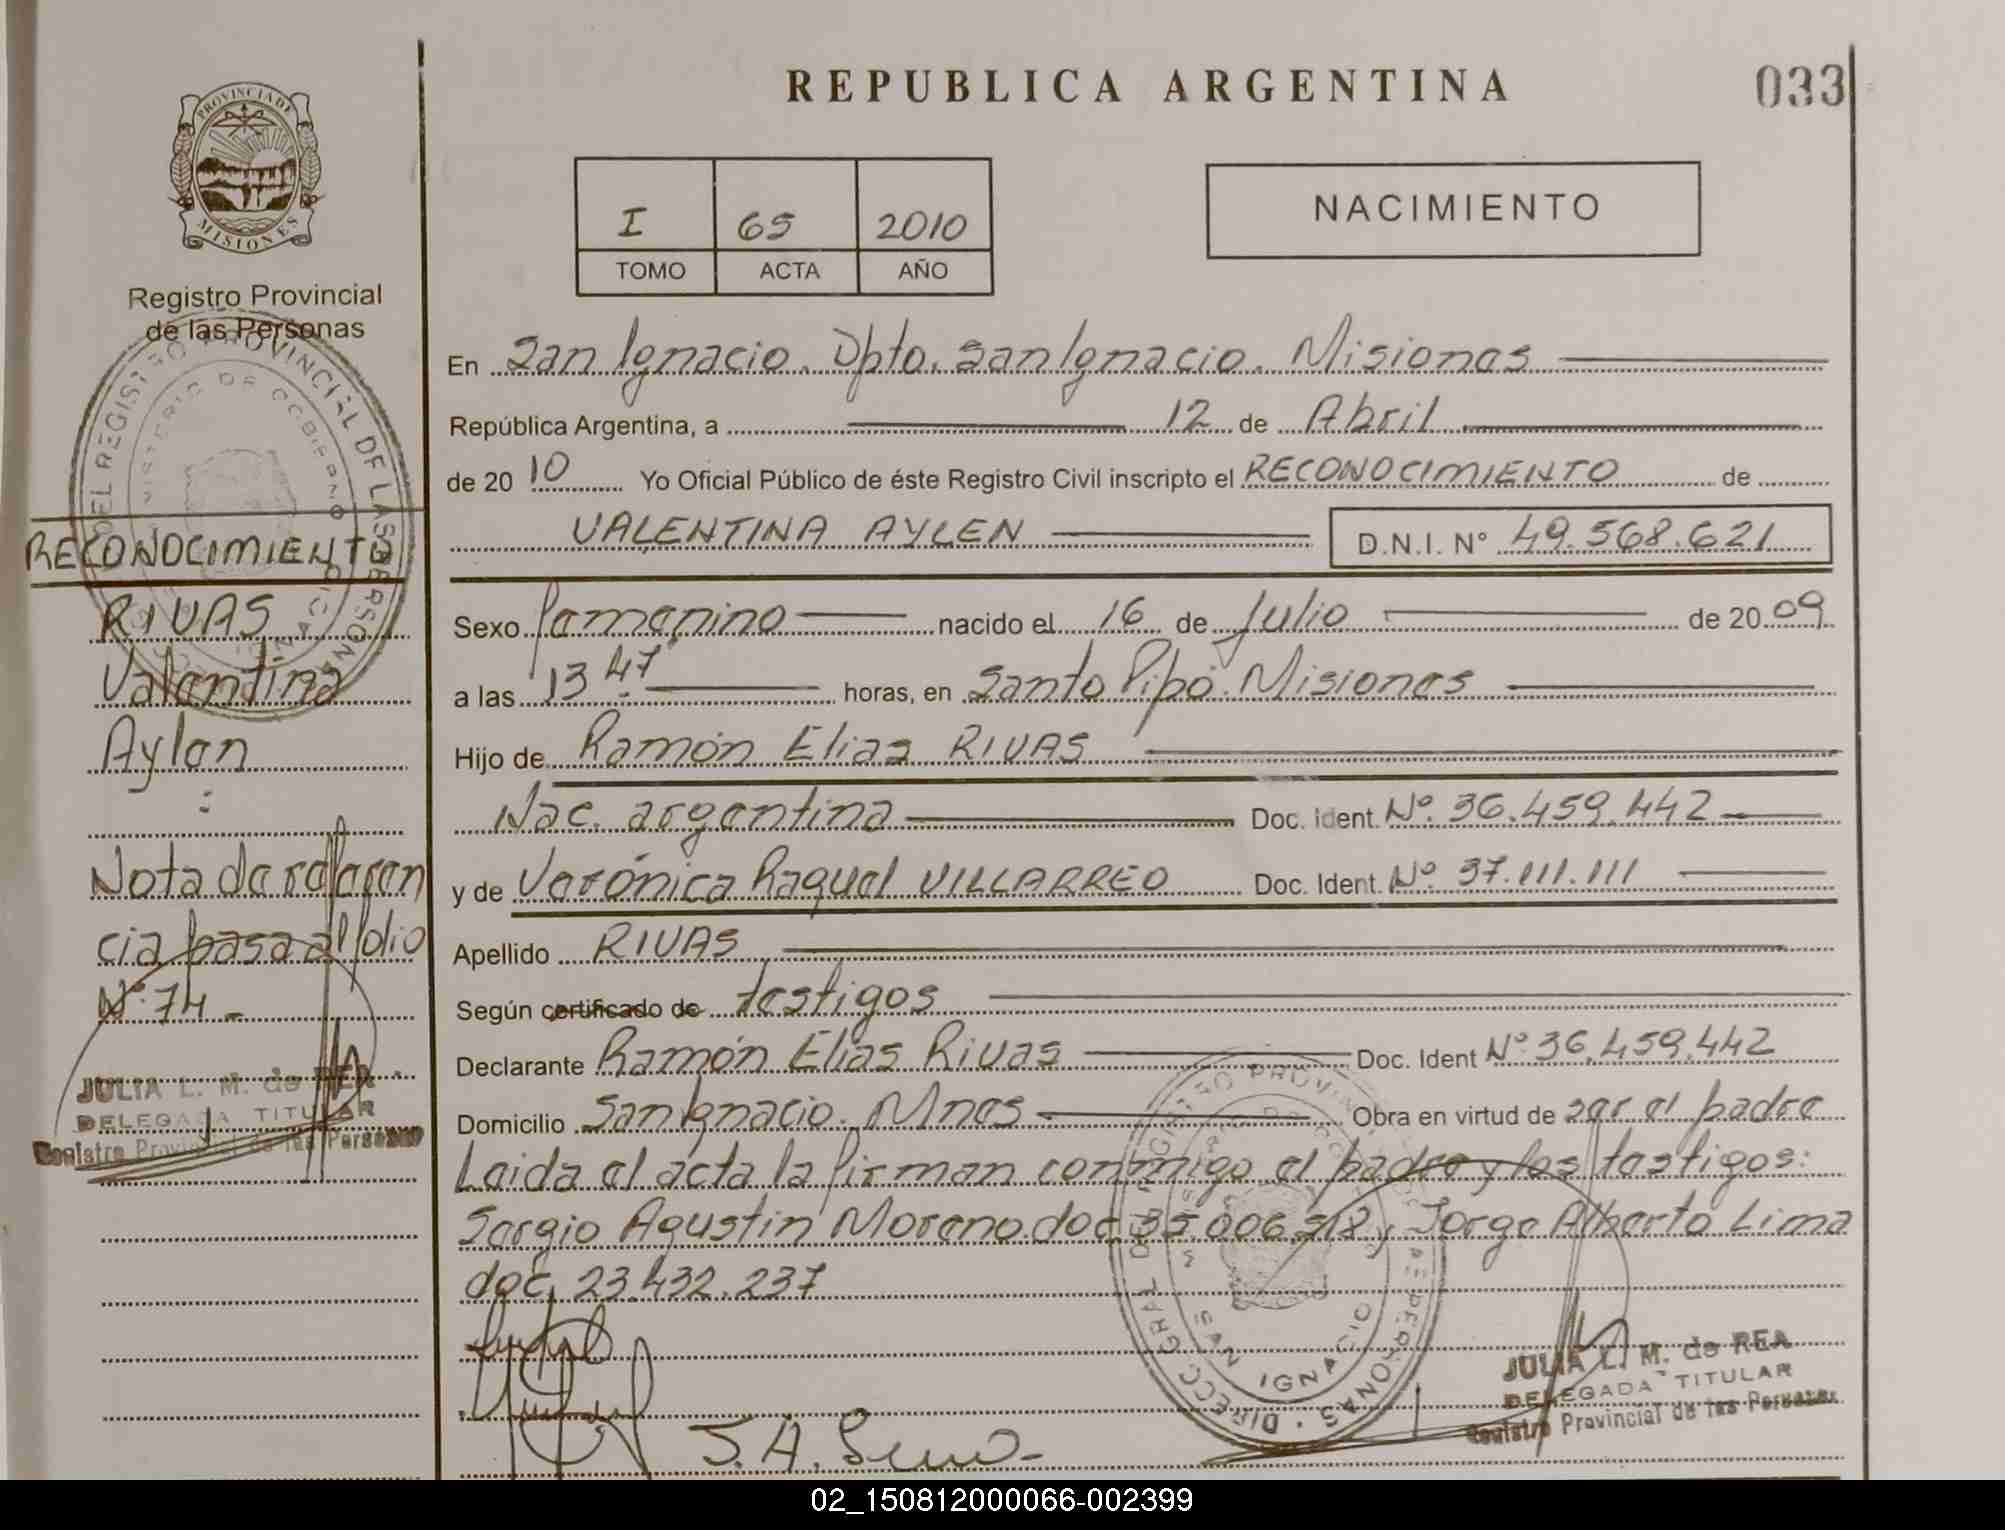 REPUBLICA ARGENTINA
033
PROVINCIA DE
MISIONES
Registro Provincial
de las Personas
I 65 2010
TOMO ACTA AÑO
NACIMIENTO
En San Ignacio. Dpto. San Ignacio. Misiones
República Argentina, a 12 de Abril
de 20 10 Yo Oficial Público de éste Registro Civil inscripto el RECONOCIMIENTO de
VALENTINA AYLEN D.N.I. N° 49.568.621
Sexo femenino nacido el 16 de Julio de 20 09
a las 13 47 horas, en Santo Pipó. Misiones
Hijo de Ramón Elias RIVAS
Nac. argentina Doc. Ident. N° 36.459.442
y de Verónica Raquel VILLARREO Doc. Ident. N° 37.111.111
Apellido RIVAS
Según certificado de testigos
Declarante Ramón Elias Rivas Doc. Ident N° 36.459.442
Domicilio San Ignacio. Mnes Obra en virtud de ser el padre
Leida el acta la firman conmigo el padre y los testigos:
Sergio Agustin Moreno doc. y Jorge Alberto Lima
doc. 23.432.237
J.A.
JULIA L. M. de REA
DELEGADA TITULAR
Registro Provincial de las Personas
DIRECC. GRAL. DEL REGISTRO PROVINCIAL DE LAS PERSONAS
SAN IGNACIO
RECONOCIMIENTO
RIVAS
Valentina
Aylen
Nota de referen
cia pasa al folio
N° 74 -
JULIA L. M. de REA
DELEGADA TITULAR
Registro Provincial de las Personas
DEL REGISTRO PROVINCIAL DE LAS PERSONAS
MINISTERIO DE GOBIERNO
02_150812000066-002399